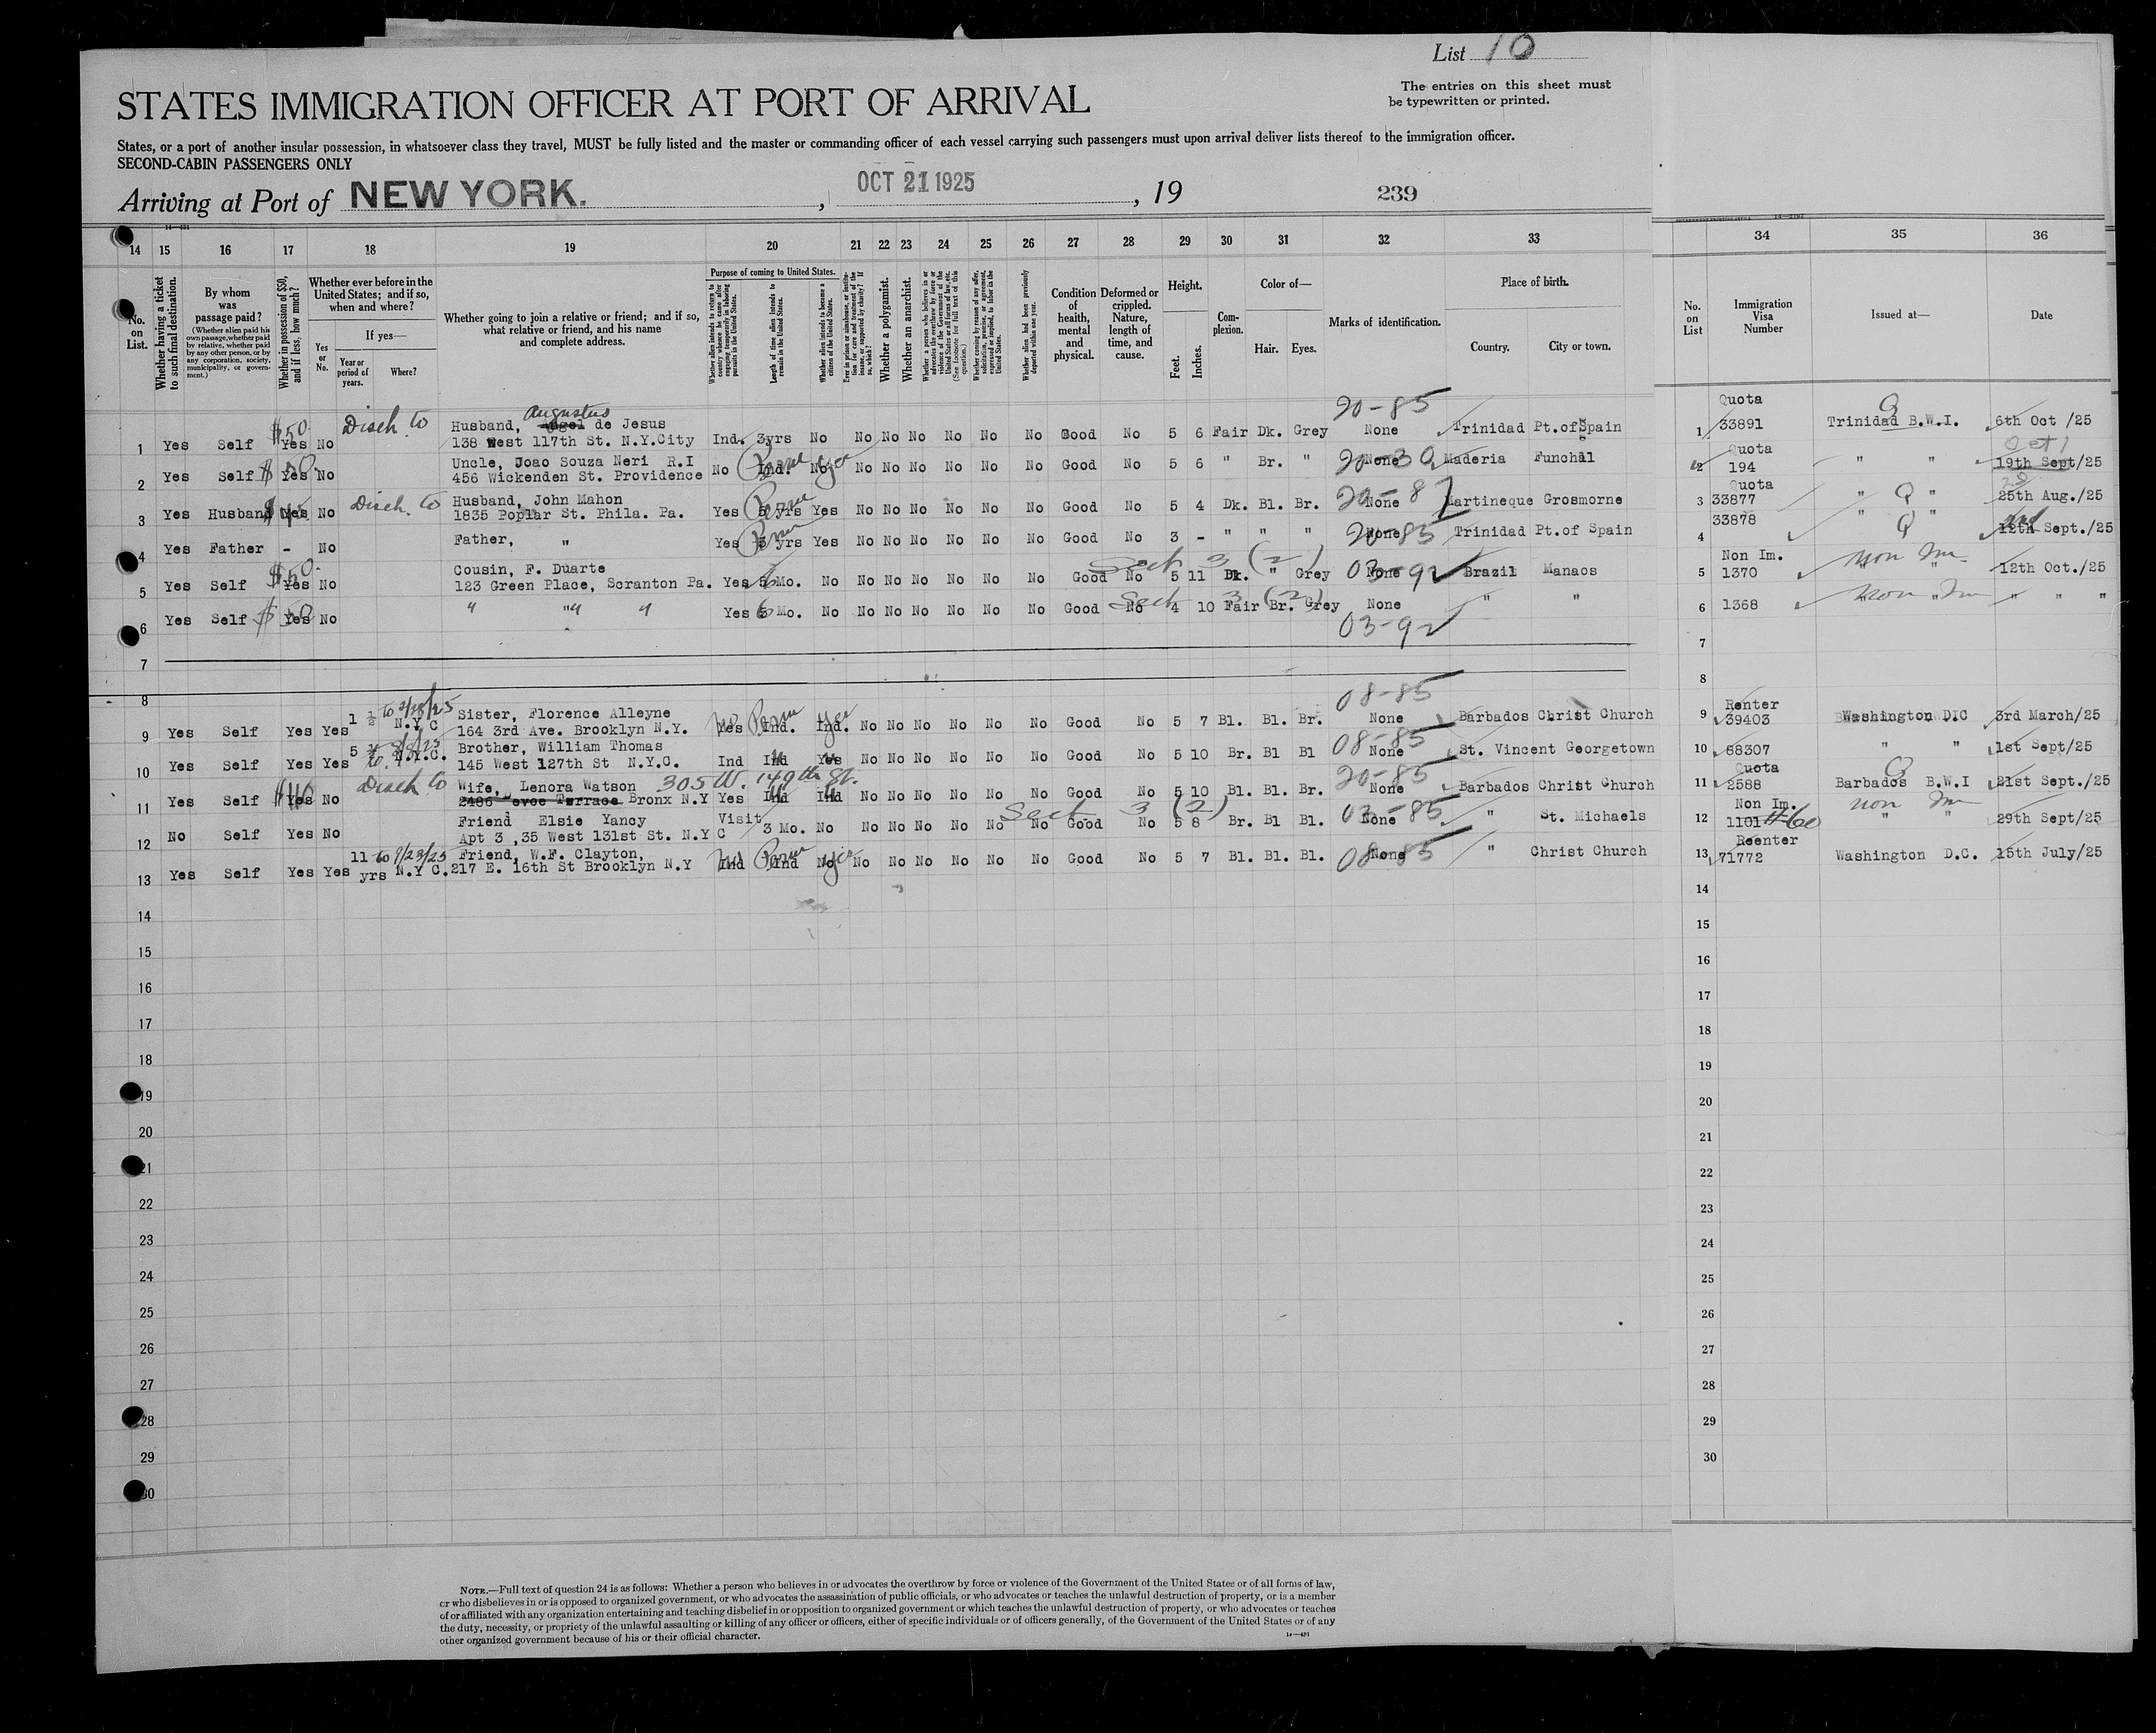 List 10
The entries on this sheet must
be typewritten or printed.
STATES IMMIGRATION OFFICER AT PORT OF ARRIVAL
States, or a port of another insular possession, in whatsoever class they travel, MUST be fully listed and the master or commanding officer of each vessel carrying such passengers must upon arrival deliver lists thereof to the immigration officer.
SECOND-CABIN PASSENGERS ONLY
Arriving at Port of NEW YORK. , OCT 21 1925 , 19 239
14 15 16 17 18 19 20 21 22 23 24 25 26 27 28 29 30 31 32 33 34 35 36
No. on List.
Whether having a ticket to such final destination.
By whom was passage paid?
(Whether alien paid his own passage, whether paid by relative, whether paid by any other person, or by any corporation, society, municipality, or government.)
Whether in possession of $50, and if less, how much?
Whether ever before in the United States; and if so, when and where?
Yes or No.
If yes—
Year or period of years.
Where?
Whether going to join a relative or friend; and if so, what relative or friend, and his name and complete address.
Purpose of coming to United States.
Whether alien intends to return to country whence he came after engaging temporarily in laboring pursuits in the United States.
Length of time alien intends to remain in the United States.
Whether alien intends to become a citizen of the United States.
Ever in prison or almshouse, or institution for care and treatment of the insane, or supported by charity? If so, which?
Whether a polygamist.
Whether an anarchist.
Whether a person who believes in or advocates the overthrow by force or violence of the Government of the United States or all forms of law, etc. (See footnote for full text of this question.)
Whether coming by reason of any offer, solicitation, promise, or agreement, expressed or implied, to labor in the United States.
Whether alien had been previously deported within one year.
Condition of health, mental and physical.
Deformed or crippled. Nature, length of time, and cause.
Height.
Feet. Inches.
Complexion.
Color of—
Hair. Eyes.
Marks of identification.
Place of birth.
Country. City or town.
No. on List
Immigration Visa Number
Issued at—
Date
Augustus 20-85 Quota Q
1 Yes Self $50 Yes No Disch to Husband, Angel de Jesus
138 West 117th St. N.Y.City Ind. 3yrs No No No No No No No Good No 5 6 Fair Dk. Grey None Trinidad Pt.of Spain 1 33891 Trinidad B.W.I. 6th Oct /25
Oct 1
2 Yes Self $50. Yes No Uncle, Joao Souza Neri R.I
456 Wickenden St. Providence No Perm Ind. No yes No No No No No No Good No 5 6 " Br. " 20-39 None Maderia Funchal 2 Quota 194 " " 19th Sept/25
3 Yes Husband Yes No Disch. to Husband, John Mahon
1835 Poplar St. Phila. Pa. Yes Perm 5 yrs Yes No No No No No No Good No 5 4 Dk. Bl. Br. 20-87 None Martineque Grosmorne 3 Quota 33877 " Q " 25th Aug./25
4 Yes Father - No Father, " Yes Perm yrs Yes No No No No No No Good No 3 - " " " 20-85 None Trinidad Pt.of Spain 4 33878 " Q " 12th Sept./25
Sect 3 (2)
5 Yes Self $50. Yes No Cousin, F. Duarte
123 Green Place, Scranton Pa. Yes 6 Mo. No No No No No No No Good No 5 11 Dk. " Grey 03-92 None Brazil Manaos 5 Non Im. 1370 Non Im " 12th Oct./25
Sect 3 (2)
6 Yes Self $50 Yes No " " " " Yes 6 Mo. No No No No No No No Good No 4 10 Fair Br. Grey None " " 6 1368 Non Im " " " "
03-92
7 7
8 8
08-85
9 Yes Self Yes Yes 1 ½ to N.Y C Sister, Florence Alleyne
164 3rd Ave. Brooklyn N.Y. Yes No Perm Ind. Ind. yes No No No No No No Good No 5 7 Bl. Bl. Br. None Barbados Christ Church 9 Renter 39403 Washington DIC 3rd March/25
10 Yes Self Yes Yes 5 to N.Y.C. Brother, William Thomas
145 West 127th St N.Y.C. Ind Ind Yes No No No No No No Good No 5 10 Br. Bl Bl 08-85 None St. Vincent Georgetown 10 88307 " " 1st Sept/25
11 Yes Self Yes No Disch to Wife, Lenora Watson 305 W. 149th St.
2486 Terrace Bronx N.Y Yes Ind Ind No No No No No No Good No 5 10 Bl. Bl. Br. 20-85 None Barbados Christ Church 11 Quota 2588 Q Barbados B.W.I 21st Sept./25
Sect 3 (2)
12 No Self Yes No Friend Elsie Yancy
Apt 3 ,35 West 131st St. N.Y C Visit 3 Mo. No No No No No No No Good No 5 8 Br. Bl Bl. 03-85 None " St. Michaels 12 Non Im. 1101 #60 Non Im " " 29th Sept/25
13 Yes Self Yes Yes 11 yrs to 7/23/25 N.Y C. Friend, W.F. Clayton,
217 E. 16th St Brooklyn N.Y Ind No Perm Ind No yes No No No No No No Good No 5 7 Bl. Bl. Bl. 08-85 None " Christ Church 13 Reenter 71772 Washington D.C. 15th July/25
14 14
15 15
16 16
17 17
18 18
19 19
20 20
21 21
22 22
23 23
24 24
25 25
26 26
27 27
28 28
29 29
30 30
NOTE.—Full text of question 24 is as follows: Whether a person who believes in or advocates the overthrow by force or violence of the Government of the United States or of all forms of law,
or who disbelieves in or is opposed to organized government, or who advocates the assassination of public officials, or who advocates or teaches the unlawful destruction of property, or is a member
of or affiliated with any organization entertaining and teaching disbelief in or opposition to organized government or which teaches the unlawful destruction of property, or who advocates or teaches
the duty, necessity, or propriety of the unlawful assaulting or killing of any officer or officers, either of specific individuals or of officers generally, of the Government of the United States or of any
other organized government because of his or their official character.